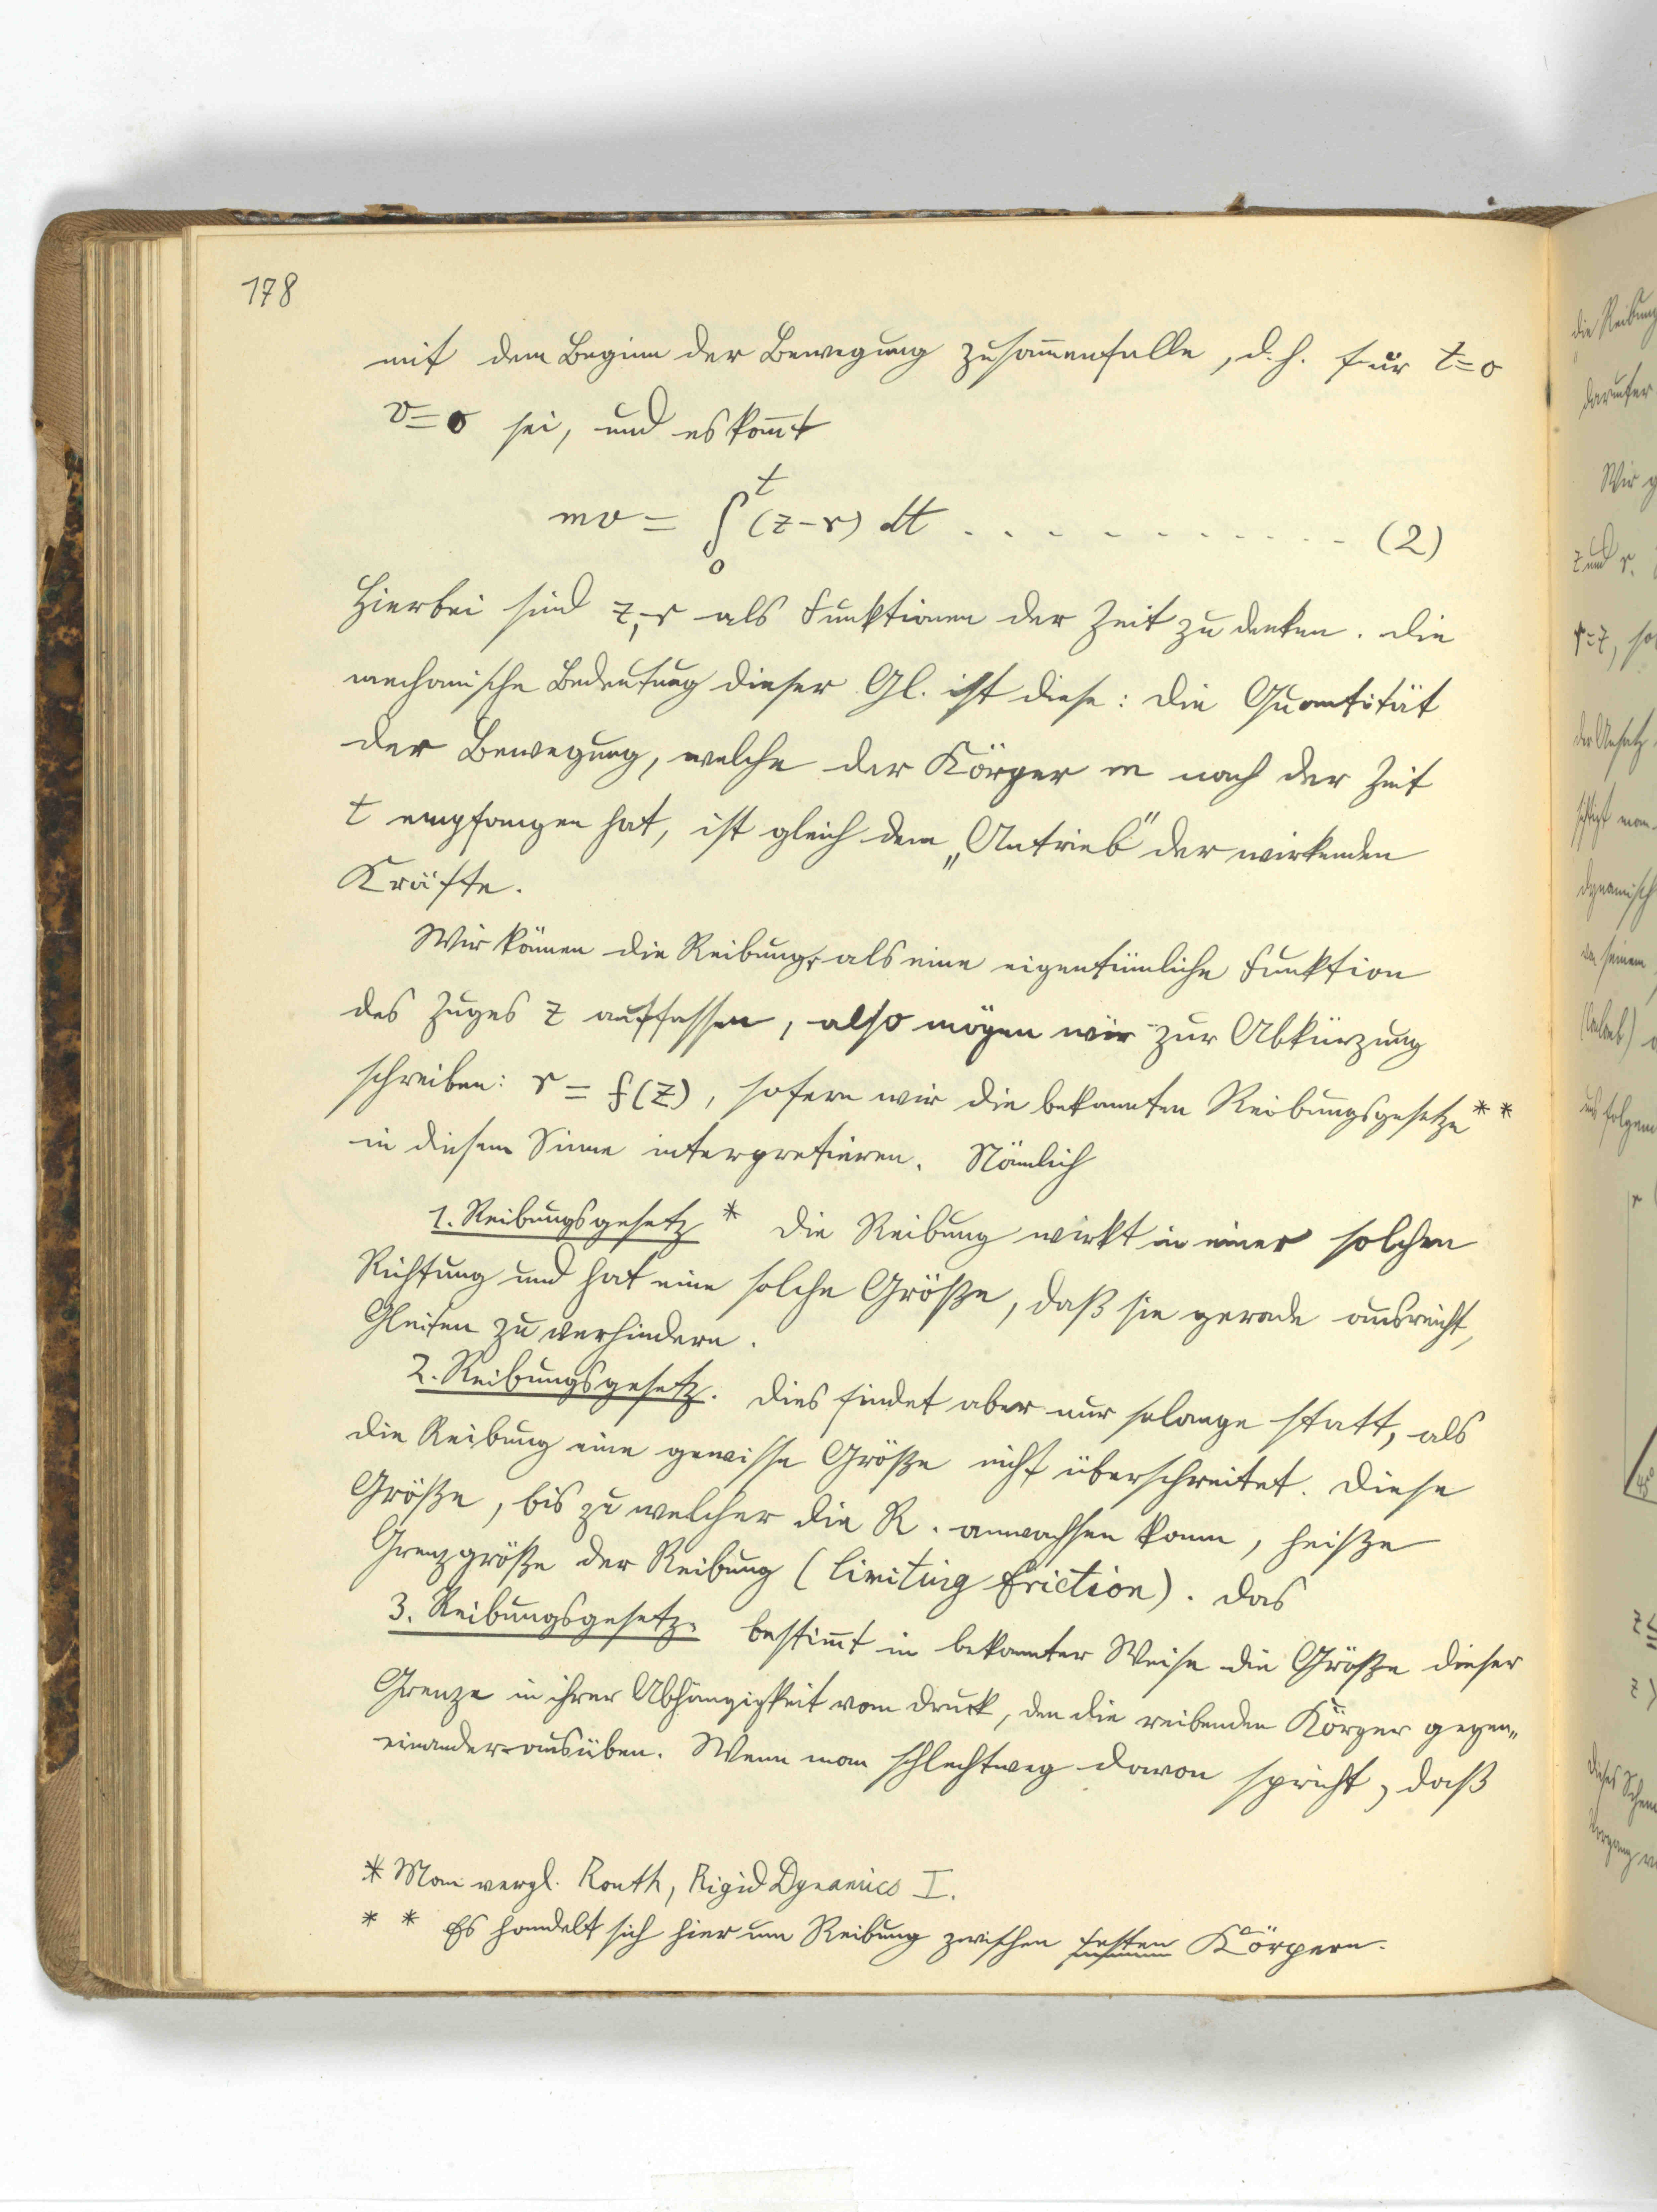 178
mit dem Beginn der Bewegung zusam̅enfalle, d. h. für t=0
v=0 sei, und es kom̅t
mv = ∫₀ᵗ (z-r) dt . . . . . . . . . . . . (2)
Hierbei sind z, r als Funktionen der Zeit zu denken. Die
mechanische Bedeutung dieser Gl. ist diese: Die Quantität
der Bewegung, welche der Körper m nach der Zeit
t empfangen hat, ist gleich dem „Antrieb" der wirkenden
Kräfte.
Wir kön̅en die Reibung r als eine eigentümliche Funktion
des Zuges z auffassen, also mögen wir zur Abkürzung
schreiben: r = f(z), sofern wir die bekannten Reibungsgesetze * *
in diesem Sinne interpretieren. Nämlich
1. Reibungsgesetz * Die Reibung wirkt in einer solchen
Richtung und hat eine solche Größe, daß sie gerade ausreicht,
Gleiten zu verhindern.
2. Reibungsgesetz. Dies findet aber nur solange statt, als
die Reibung eine gewisse Größe nicht überschreitet. Diese
Größe, bis zu welcher die R. anwachsen kann, heiße
Grenzgröße der Reibung (limiting friction). Das
3. Reibungsgesetz. bestim̅t in bekannter Weise die Größe dieser
Grenze in ihrer Abhängigkeit vom Druck, den die reibenden Körper gegen„
einander ausüben. Wenn man schlechtweg davon spricht, daß
* Man vergl. Routh, Rigid Dynamics I.
* * Es handelt sich hier um Reibung zwischen festen Körpern.
die Reibung
darunter
Wir
z und r.
r=z, so
der Ansatz
man
dynamisch
seinem
folgen
r
45°
z ≤
z >
dieses